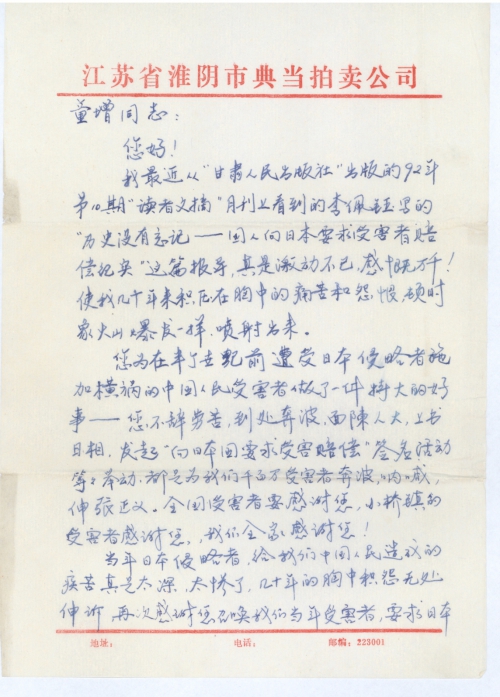 江苏省淮阴市典当拍卖公司
童增同志：
您好！
我最近从"甘肃人民出版社"出版的92年
第10期"读者文摘"月刊上看到的李佩钰写的
"历史没有忘记——国人向日本要求受害者赔
偿纪实"这篇报导，真是激动不已，感慨万千！
使我几十年来积压在胸中的痛苦和怨恨，顿时
象火山爆发一样，喷射出来。
您为在半个世纪前遭受日本侵略者施
加横祸的中国人民受害者做了一件特大的好
事——您不辞劳苦，到处奔波，面陈人大，上书
日相，发起"向日本国要求受害赔偿"签名活动
等々举动，都是为我们千百万受害者奔波，呐喊，
伸张正义。全国受害者要感谢您，小桥镇的
受害者感谢您，我们全家感谢您！
当年日本侵略者，给我们中国人民造成的
疾苦真是太深，太惨了，几十年的胸中积怨无处
伸诉，再次感谢您召唤我们当年受害者，要求日本
地址： 电话： 邮编：223001